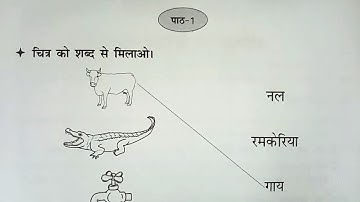 पाठ-1
चित्र को शब्द से मिलाओ।
नल
रमकेरिया
गाय